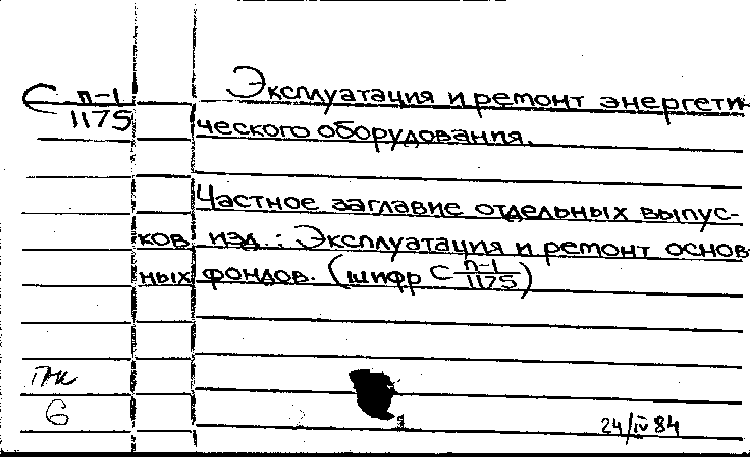 С п-1/1175
Эксплуатация и ремонт энергети-
ческого оборудования.
Частное заглавие отдельных выпус-
ков изд.: Эксплуатация и ремонт основ-
ных фондов. (шифр С п-1/1175)
6
24/IV 84